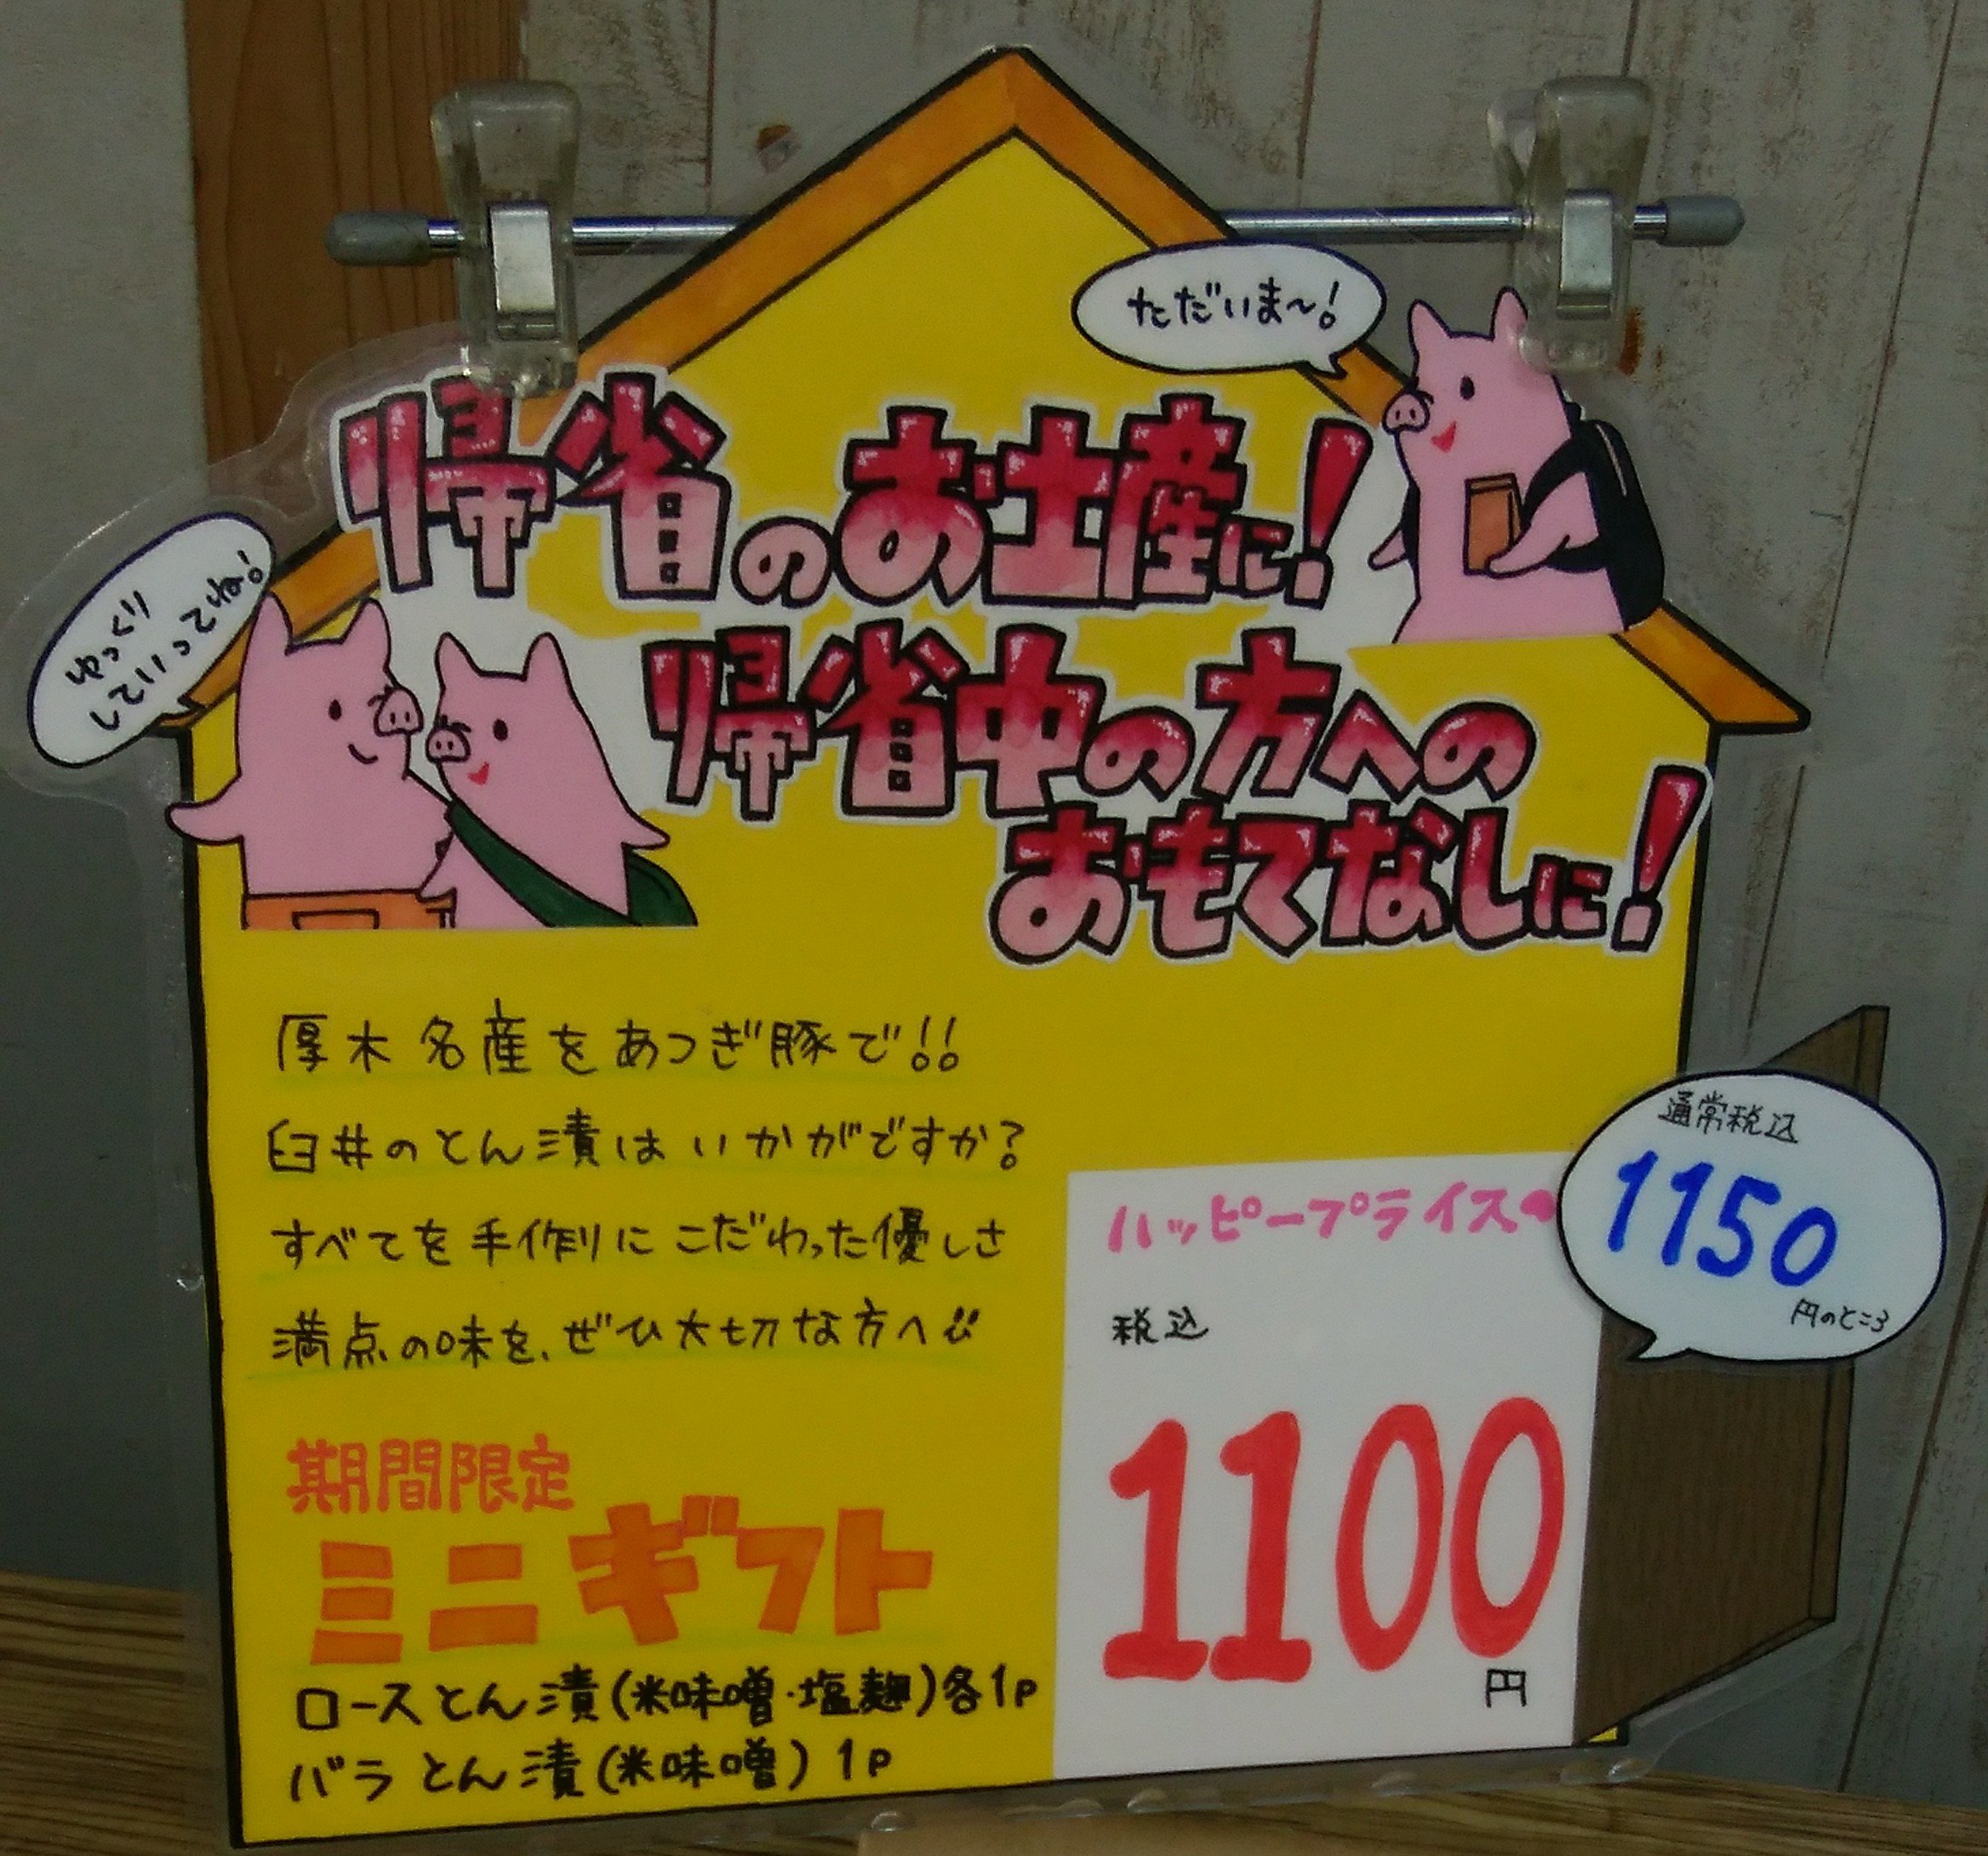 ただいま〜!
帰省のお土産に!
ゆっくり
していってね!
帰省中の方への
おもてなしに!
厚木名産をあつぎ豚で!!
臼井のとん漬はいかがですか?
すべてを手作りにこだわった優しさ
満点の味を、ぜひ大切な方へ
期間限定
ミニギフト
ロースとん漬(米味噌・塩麹)各1p
バラとん漬(米味噌)1p
ハッピープライス
税込
1100
円
通常税込
1150
円のところ